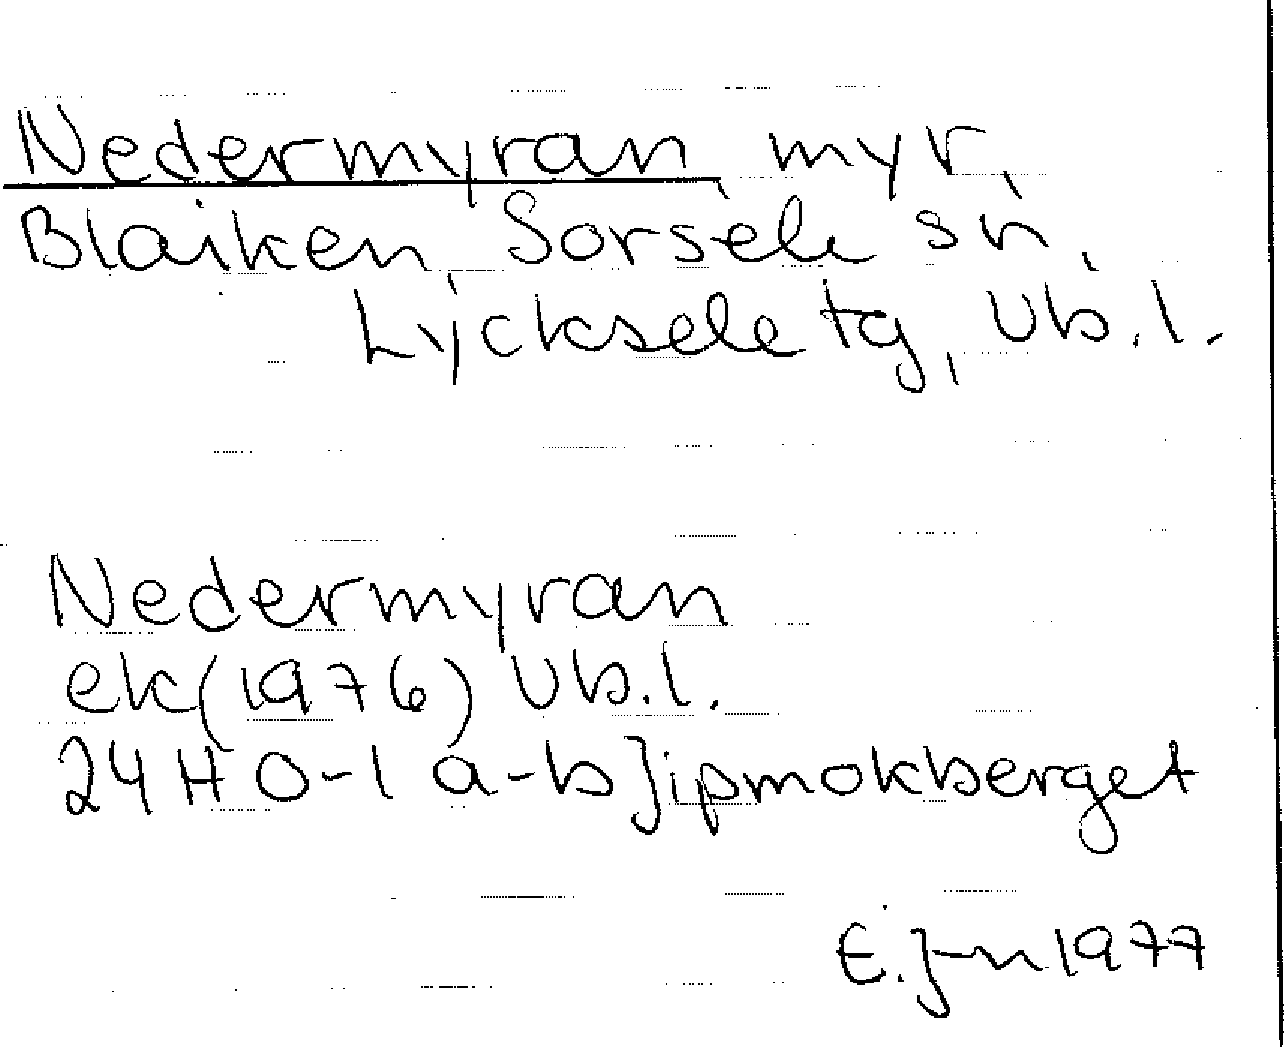 Nedermyran, myr,
Blaiken, Sorsele sn,
Lycksele tg, Vb.l.
Nedermyran
ek(1976) Vb.l.
24H 0-1 a-b Jipmokberget
E.J-n 1977